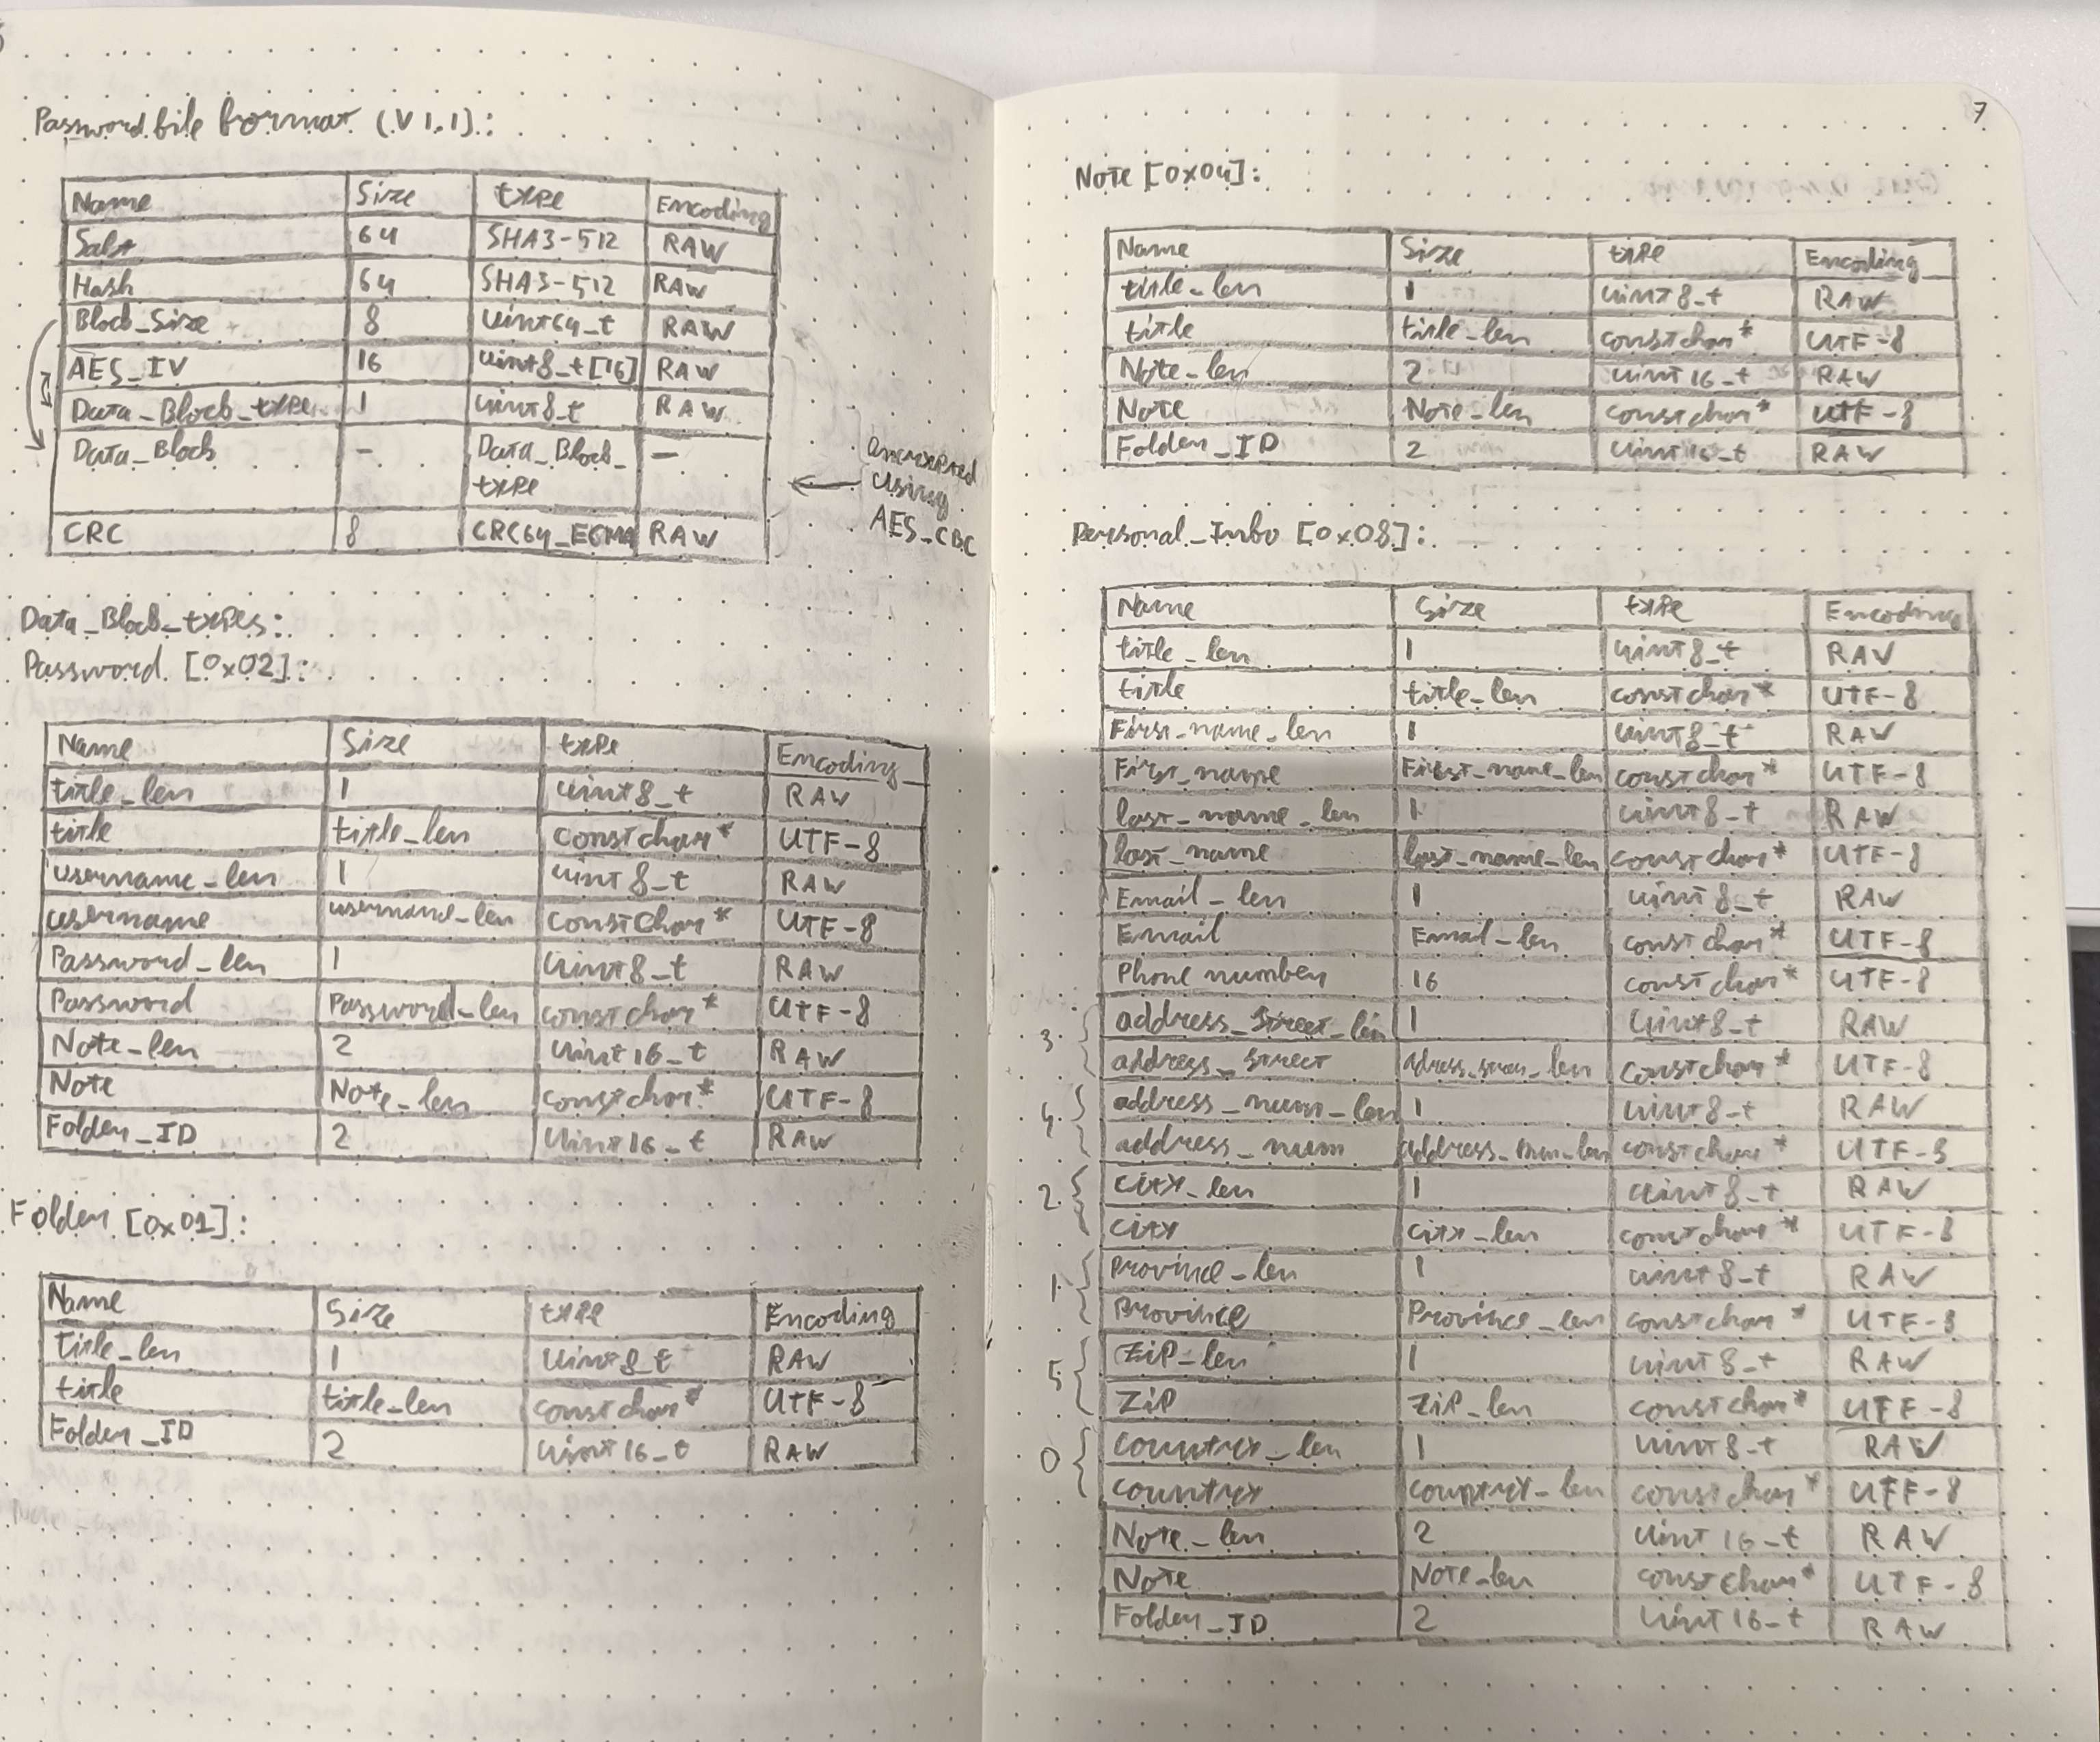 Password file format (V1.1):
Name Size type Encoding
Salt 64 SHA3-512 RAW
Hash 64 SHA3-512 RAW
Block_Size 8 uint64_t RAW
AES_IV 16 uint8_t[16] RAW
Data_Block_type 1 uint8_t RAW
Data_Block - Data_Block_ —
type
CRC 8 CRC64_ECMA RAW
encrypted
using
AES_CBC
Data_Block_types:
Password [0x02]:
Name Size type Encoding
title_len 1 uint8_t RAW
title title_len const char* UTF-8
username_len 1 uint8_t RAW
username username_len const char* UTF-8
Password_len 1 uint8_t RAW
Password Password_len const char* UTF-8
Note_len 2 uint16_t RAW
Note Note_len const char* UTF-8
Folder_ID 2 uint16_t RAW
Folder [0x01]:
Name Size type Encoding
title_len 1 uint8_t RAW
title title_len const char* UTF-8
Folder_ID 2 uint16_t RAW
7
Note [0x04]:
Name Size type Encoding
title_len 1 uint8_t RAW
title title_len const char* UTF-8
Note_len 2 uint16_t RAW
Note Note_len const char* UTF-8
Folder_ID 2 uint16_t RAW
Personal_Info [0x08]:
Name Size type Encoding
title_len 1 uint8_t RAW
title title_len const char* UTF-8
First_name_len 1 uint8_t RAW
First_name First_name_len const char* UTF-8
last_name_len 1 uint8_t RAW
last_name last_name_len const char* UTF-8
Email_len 1 uint8_t RAW
Email Email_len const char* UTF-8
Phone number 16 const char* UTF-8
3 address_Street_len 1 uint8_t RAW
address_street adress_street_len const char* UTF-8
4 address_num_len 1 uint8_t RAW
address_num address_num_len const char* UTF-8
2 city_len 1 uint8_t RAW
city city_len const char* UTF-8
1 Province_len 1 uint8_t RAW
Province Province_len const char* UTF-8
5 ZiP_len 1 uint8_t RAW
ZiP ZiP_len const char* UTF-8
0 country_len 1 uint8_t RAW
country country_len const char* UTF-8
Note_len 2 uint16_t RAW
Note Note_len const char* UTF-8
Folder_ID 2 uint16_t RAW